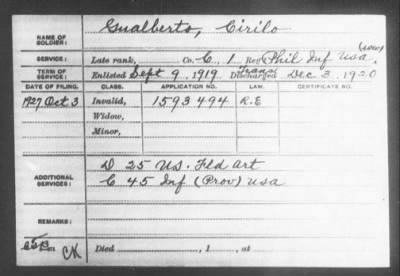 NAME OF SOLDIER: Gualberto, Cirilo
(now)
SERVICE: Late rank, Co. C, 1 Reg't Phil Inf USA.
TERM OF SERVICE: Enlisted Sept 9, 1919 Discharged Dec 3, 1920
DATE OF FILING. CLASS. APPLICATION NO. LAW. CERTIFICATE NO.
1927 Oct 3 Invalid, 1593494 R.E
Widow,
Minor,
ADDITIONAL SERVICES: D 25 US. Fld Art
C 45 Inf (Prov) USA
REMARKS:
CK Died , 1 , at